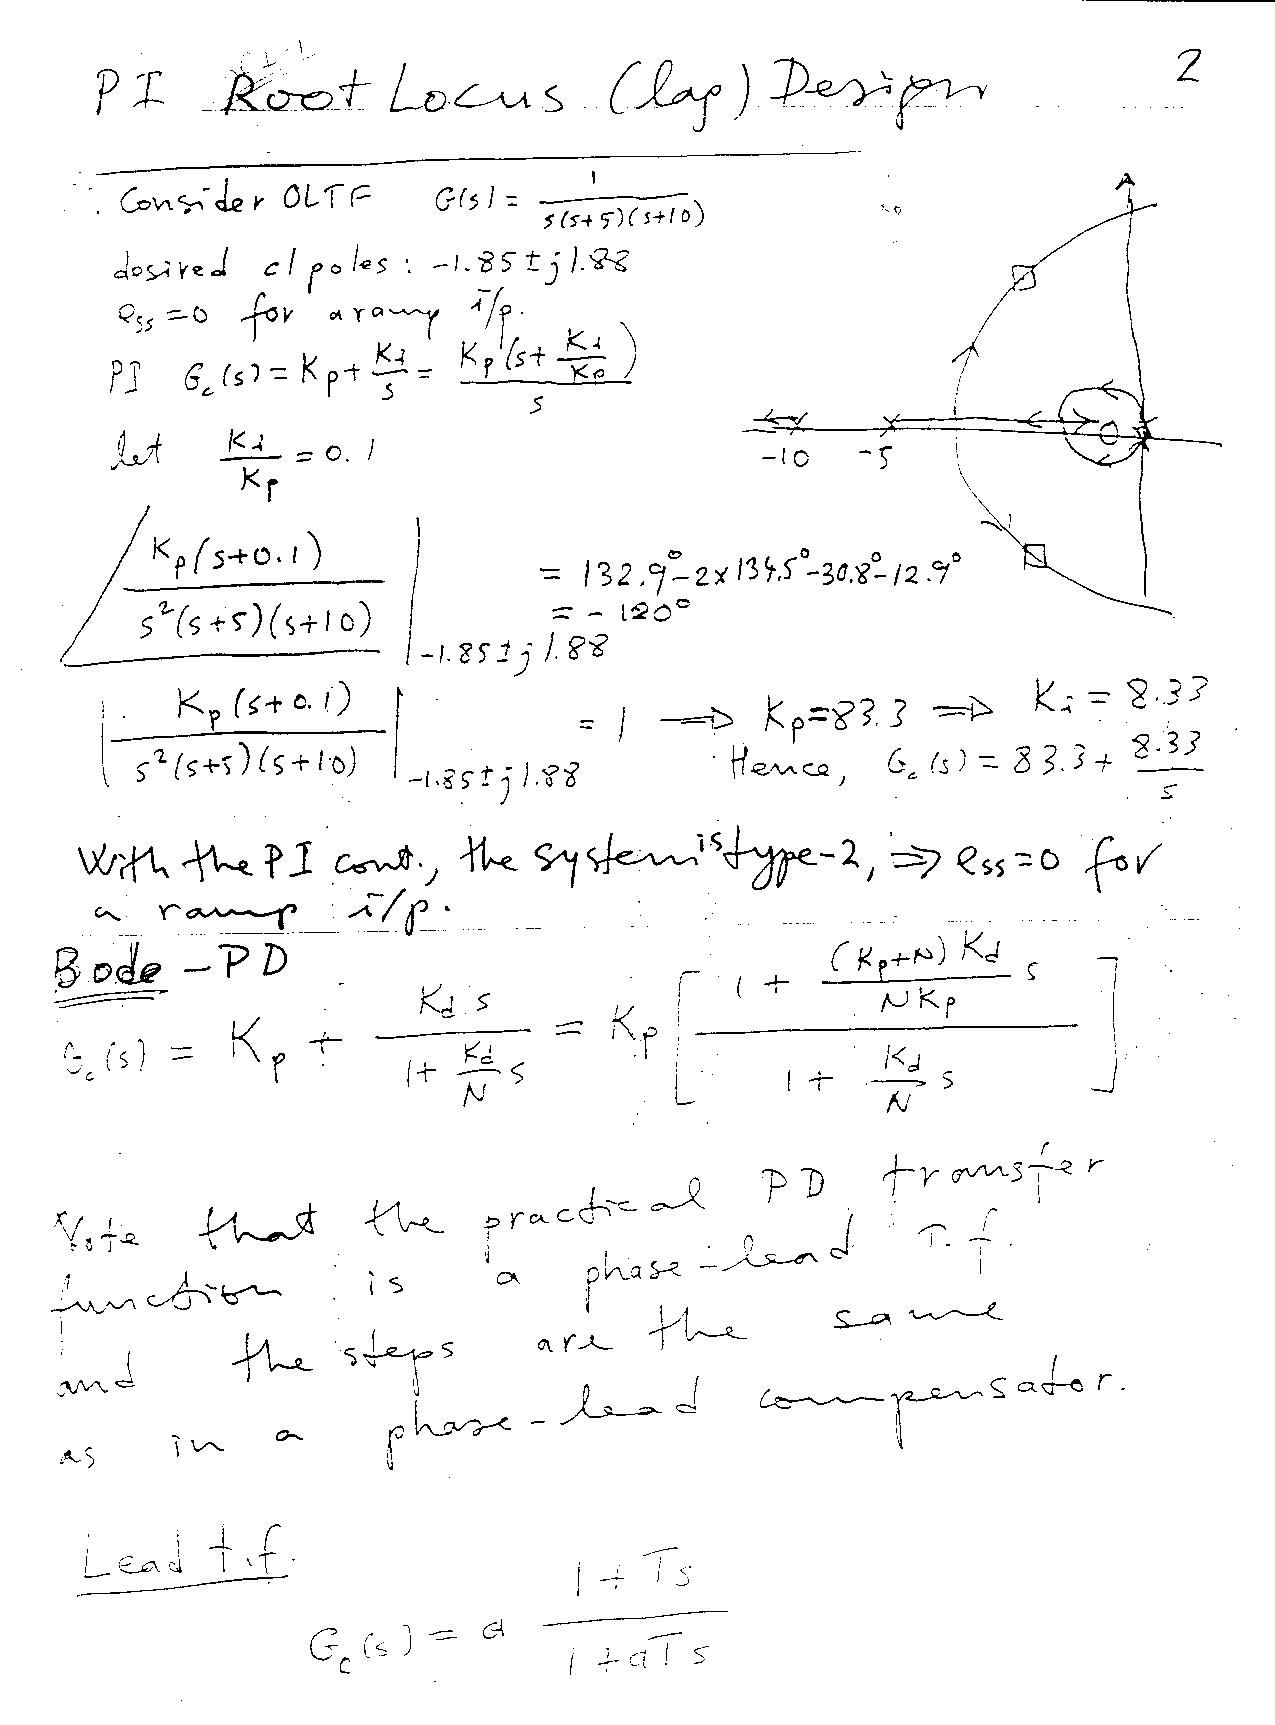 2
PI Root Locus (lag) Design
Consider OLTF G(s) = 1 / s(s+5)(s+10)
desired cl poles: -1.85 ± j1.88
ess = 0 for a ramp i/p.
PI Gc(s) = Kp + Ki/s = Kp(s + Ki/Kp) / s
let Ki/Kp = 0.1
-10 -5
∠ Kp(s+0.1) / s²(s+5)(s+10) |-1.85±j1.88 = 132.9° - 2x134.5° - 30.8° - 12.9°
= - 120°
| Kp(s+0.1) / s²(s+5)(s+10) |-1.85±j1.88 = 1 ⇒ Kp = 83.3 ⇒ Ki = 8.33
Hence, Gc(s) = 83.3 + 8.33/s
With the PI cont., the system is type-2, ⇒ ess = 0 for
a ramp i/p.
Bode - PD
Gc(s) = Kp + Kd s / (1 + Kd/N s) = Kp [ (1 + (Kp+N)Kd / NKp s) / (1 + Kd/N s) ]
Note that the practical PD transfer
function is a phase-lead T.f.
and the steps are the same
as in a phase-lead compensator.
Lead t.f.
Gc(s) = a (1 + Ts) / (1 + aTs)